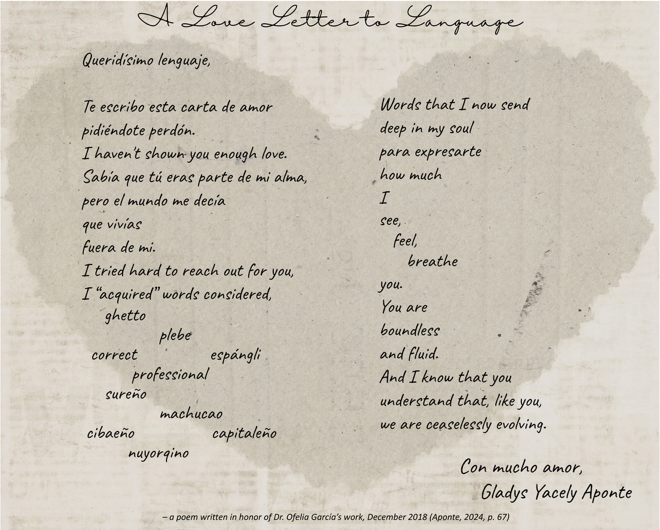 A Love Letter to Language
Queridísimo lenguaje,
Te escribo esta carta de amor
pidiéndote perdón.
I haven't shown you enough love.
Sabía que tú eras parte de mi alma,
pero el mundo me decía
que vivías
fuera de mi.
I tried hard to reach out for you,
I “acquired” words considered,
ghetto
plebe
correct espángli
professional
sureño
machucao
cibaeño capitaleño
nuyorqino
Words that I now send
deep in my soul
para expresarte
how much
I
see,
feel,
breathe
you.
You are
boundless
and fluid.
And I know that you
understand that, like you,
we are ceaselessly evolving.
Con mucho amor,
Gladys Yacely Aponte
– a poem written in honor of Dr. Ofelia García's work, December 2018 (Aponte, 2024, p. 67)